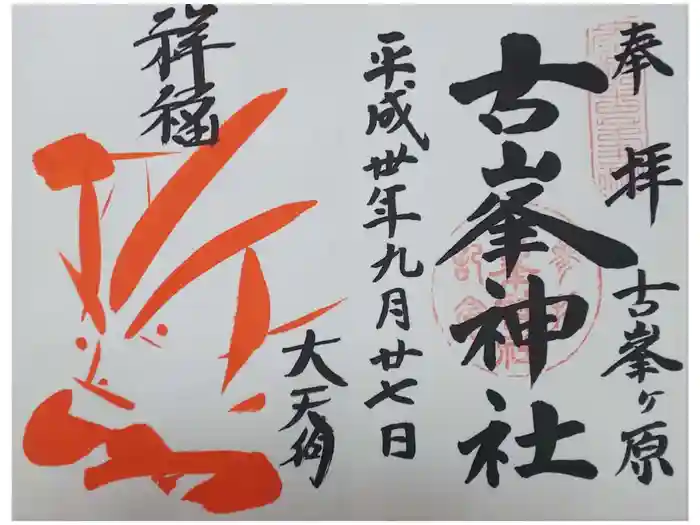 奉拝
古峯ヶ原
古峯神社
平成丗年九月廿七日
大天狗
祥福